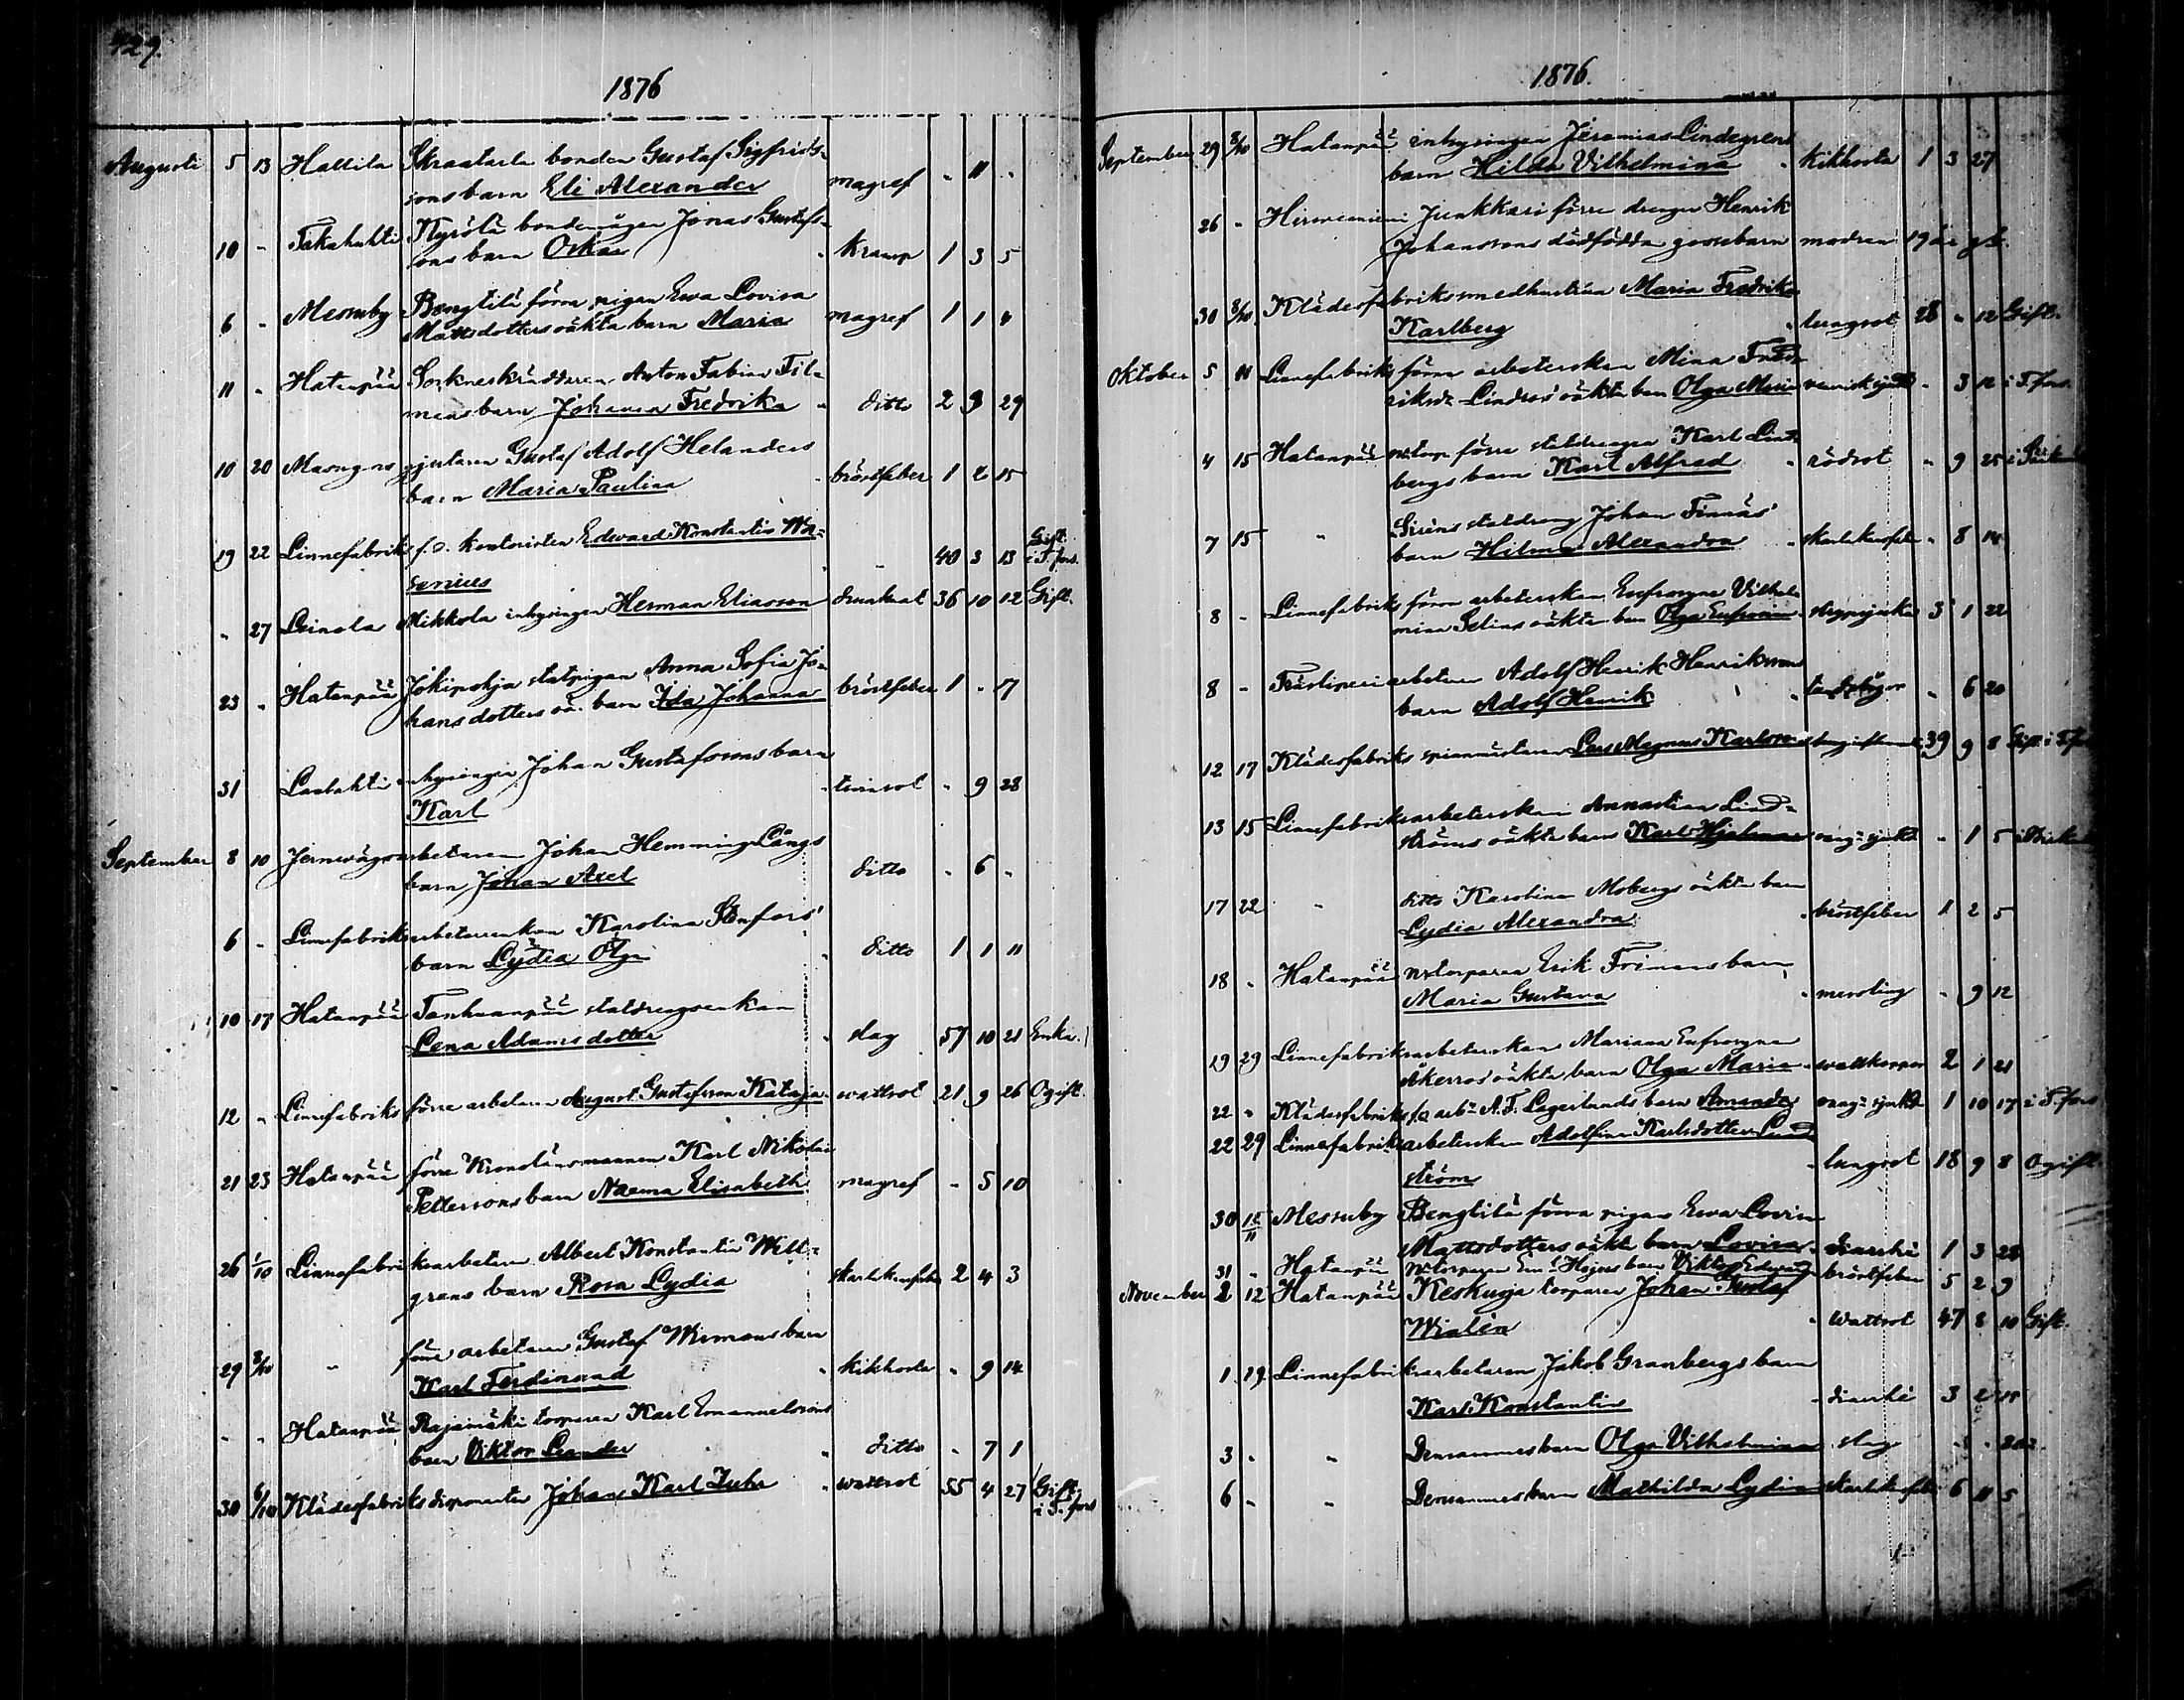 429.
1876
Augusti 5 13 Hallila Skraatarla bonden Gustaf Sigfrids-
sons barn Eli Alexander magref - 11 -
10 - Takahuhti Kyrölä bondemågen Jonas Gustafs-
sons barn Oskar kramp 1 3 5
6 - Messuby Bengtilä förra pigan Ewa Lovisa
Mattsdotters oäkta barn Maria magref 1 1
11 - Hatanpää Sockneskräddaren Anton Fabian Fil-
mans barn Johanna Fredrika ditto 2 3 29
10 20 Masugns gjutaren Gustaf Adolf Helanders
barn Maria Paulina bröstfeber 1 2 15
19 22 Linnefabriks f.d. kontoristen Edward Konstantin We-
senius - 40 3 13 Gift. i T.fors.
- 27 Leinola Mikkola inhysingen Herman Eliasson drunknat 36 10 12 Gift.
23 - Hatanpää Jokipohja statpigan Anna Sofia Jo-
hansdotters oä. barn Ida Johanna bröstfeber 1 - 17
31 Laalahti inhysingen Johan Gustafssons barn
Karl tvinsot - 9 28
September 8 10 Jernvägsarbetaren Johan Hemming Långs
barn Johan Axel ditto - 6 -
6 - Linnefabriksarbeterskan Karolina Stenfors'
barn Lydia Olga ditto 1 1 11
10 17 Hatanpää Tanhuanpää statdrengsenkan
Lena Adamsdotter slag 57 10 21 Enka.
12 - Linnefabriks förre arbetaren August Gustafsson Kataja wattsot 21 9 26 Ogift.
21 23 Hatanpää förre Kronolänsmannen Karl Nikolai
Petterssons barn Naema Elisabeth magref - 5 10
26 1/10 Linnefabriksarbetaren Albert Konstantin Welt-
grens barn Rosa Lydia skarlakansfeber 2 4 3
29 8/10 - förre arbetaren Gustaf Wirmans barn
Karl Ferdinand kikhosta - 9 14
- - Hatanpää Rajamäki torparen Karl Emanuelssons
barn Viktor Leander ditto - 7 1
30 6/10 Klädesfabriks disponenten Johan Karl Zuhr wattsot 55 4 27 Gift. i T.fors
1876.
September 29 8/10 Hatanpää inhysingen Jeremias Lindegrens
barn Hilda Vilhelmina kikhosta 1 3 27
26 - Hirviniemi Junkkari förre drengen Henrik
Johanssons dödfödda gossebarn modren 19 år g
30 8/10 Klädesfabrikssmedhustrun Maria Fredrika
Karlberg lungsot 28 - 12 Gift.
Oktober 5 Linnefabriks förra arbeterskan Mina Fred-
riksd. Lindros' oäkta barn Olga Maria venerisk sjukd. - 3 12 i T.fors.
4 15 Hatanpää förre statdrengen Karl Lind-
bergs barn Karl Alfred rödsot - 9 25
7 15 " Siréns statdreng Johan Finnäs'
barn Hilma Alexandra skarlakansfeber - 8 14
8 - Linnefabriks förra arbeterskan Eufrosyne Vilhel-
mina Selins oäkta barn Olga Eufrosine strypsjuka 3 1 22
8 - Träsliperiarbetaren Adolf Henrik Henrikssons
barn Adolf Henrik - 6 20
12 17 Klädesfabriks spinnmästaren Lars Magnus Karlsson 39 9 8 Gift i T.fors
13 15 Linnefabriksarbeterskan Annastina Lind-
ströms oäkta barn Karl Hjalmar - 1 5
17 22 " ditto Karolina Mobergs oäkta barn
Lydia Alexandra bröstfeber 1 2 5
18 - Hatanpää torparen Erik Frimans barn
Maria Gustava messling - 9 12
19 29 Linnefabriksarbeterskan Mariana Eufrosyna
Åkerros' oäkta barn Olga Maria wattkoppor 2 1 21
22 - Klädesfabriks f.d. arb. A. F. Lagerlunds barn Amanda 1 10 17 i T.fors
22 29 Linnefabriksarbeterskan Adolfina Karlsdotter Lind-
ström lungsot 18 9 8 Ogift.
30 12/11 Messuby Bengtilä förra pigan Ewa Lovisa
Mattsdotters oäkta barn Lovisa diarrhé 1 3 28
31 - Hatanpää torparen barn Viktor Edvard bröstfeber 5 2 9
November 2 12 Hatanpää Keskusja torparen Johan Gustaf
Wialén wattsot 47 8 10 Gift.
1 19 Linnefabriksarbetaren Jakob Granbergs barn
Karl Konstantin diarrhé 3 2
3 - " Densammes barn Olga Vilhelmina slag
6 - " Densammes barn Mathilda Lydia skarlaksfeber 6 11 5